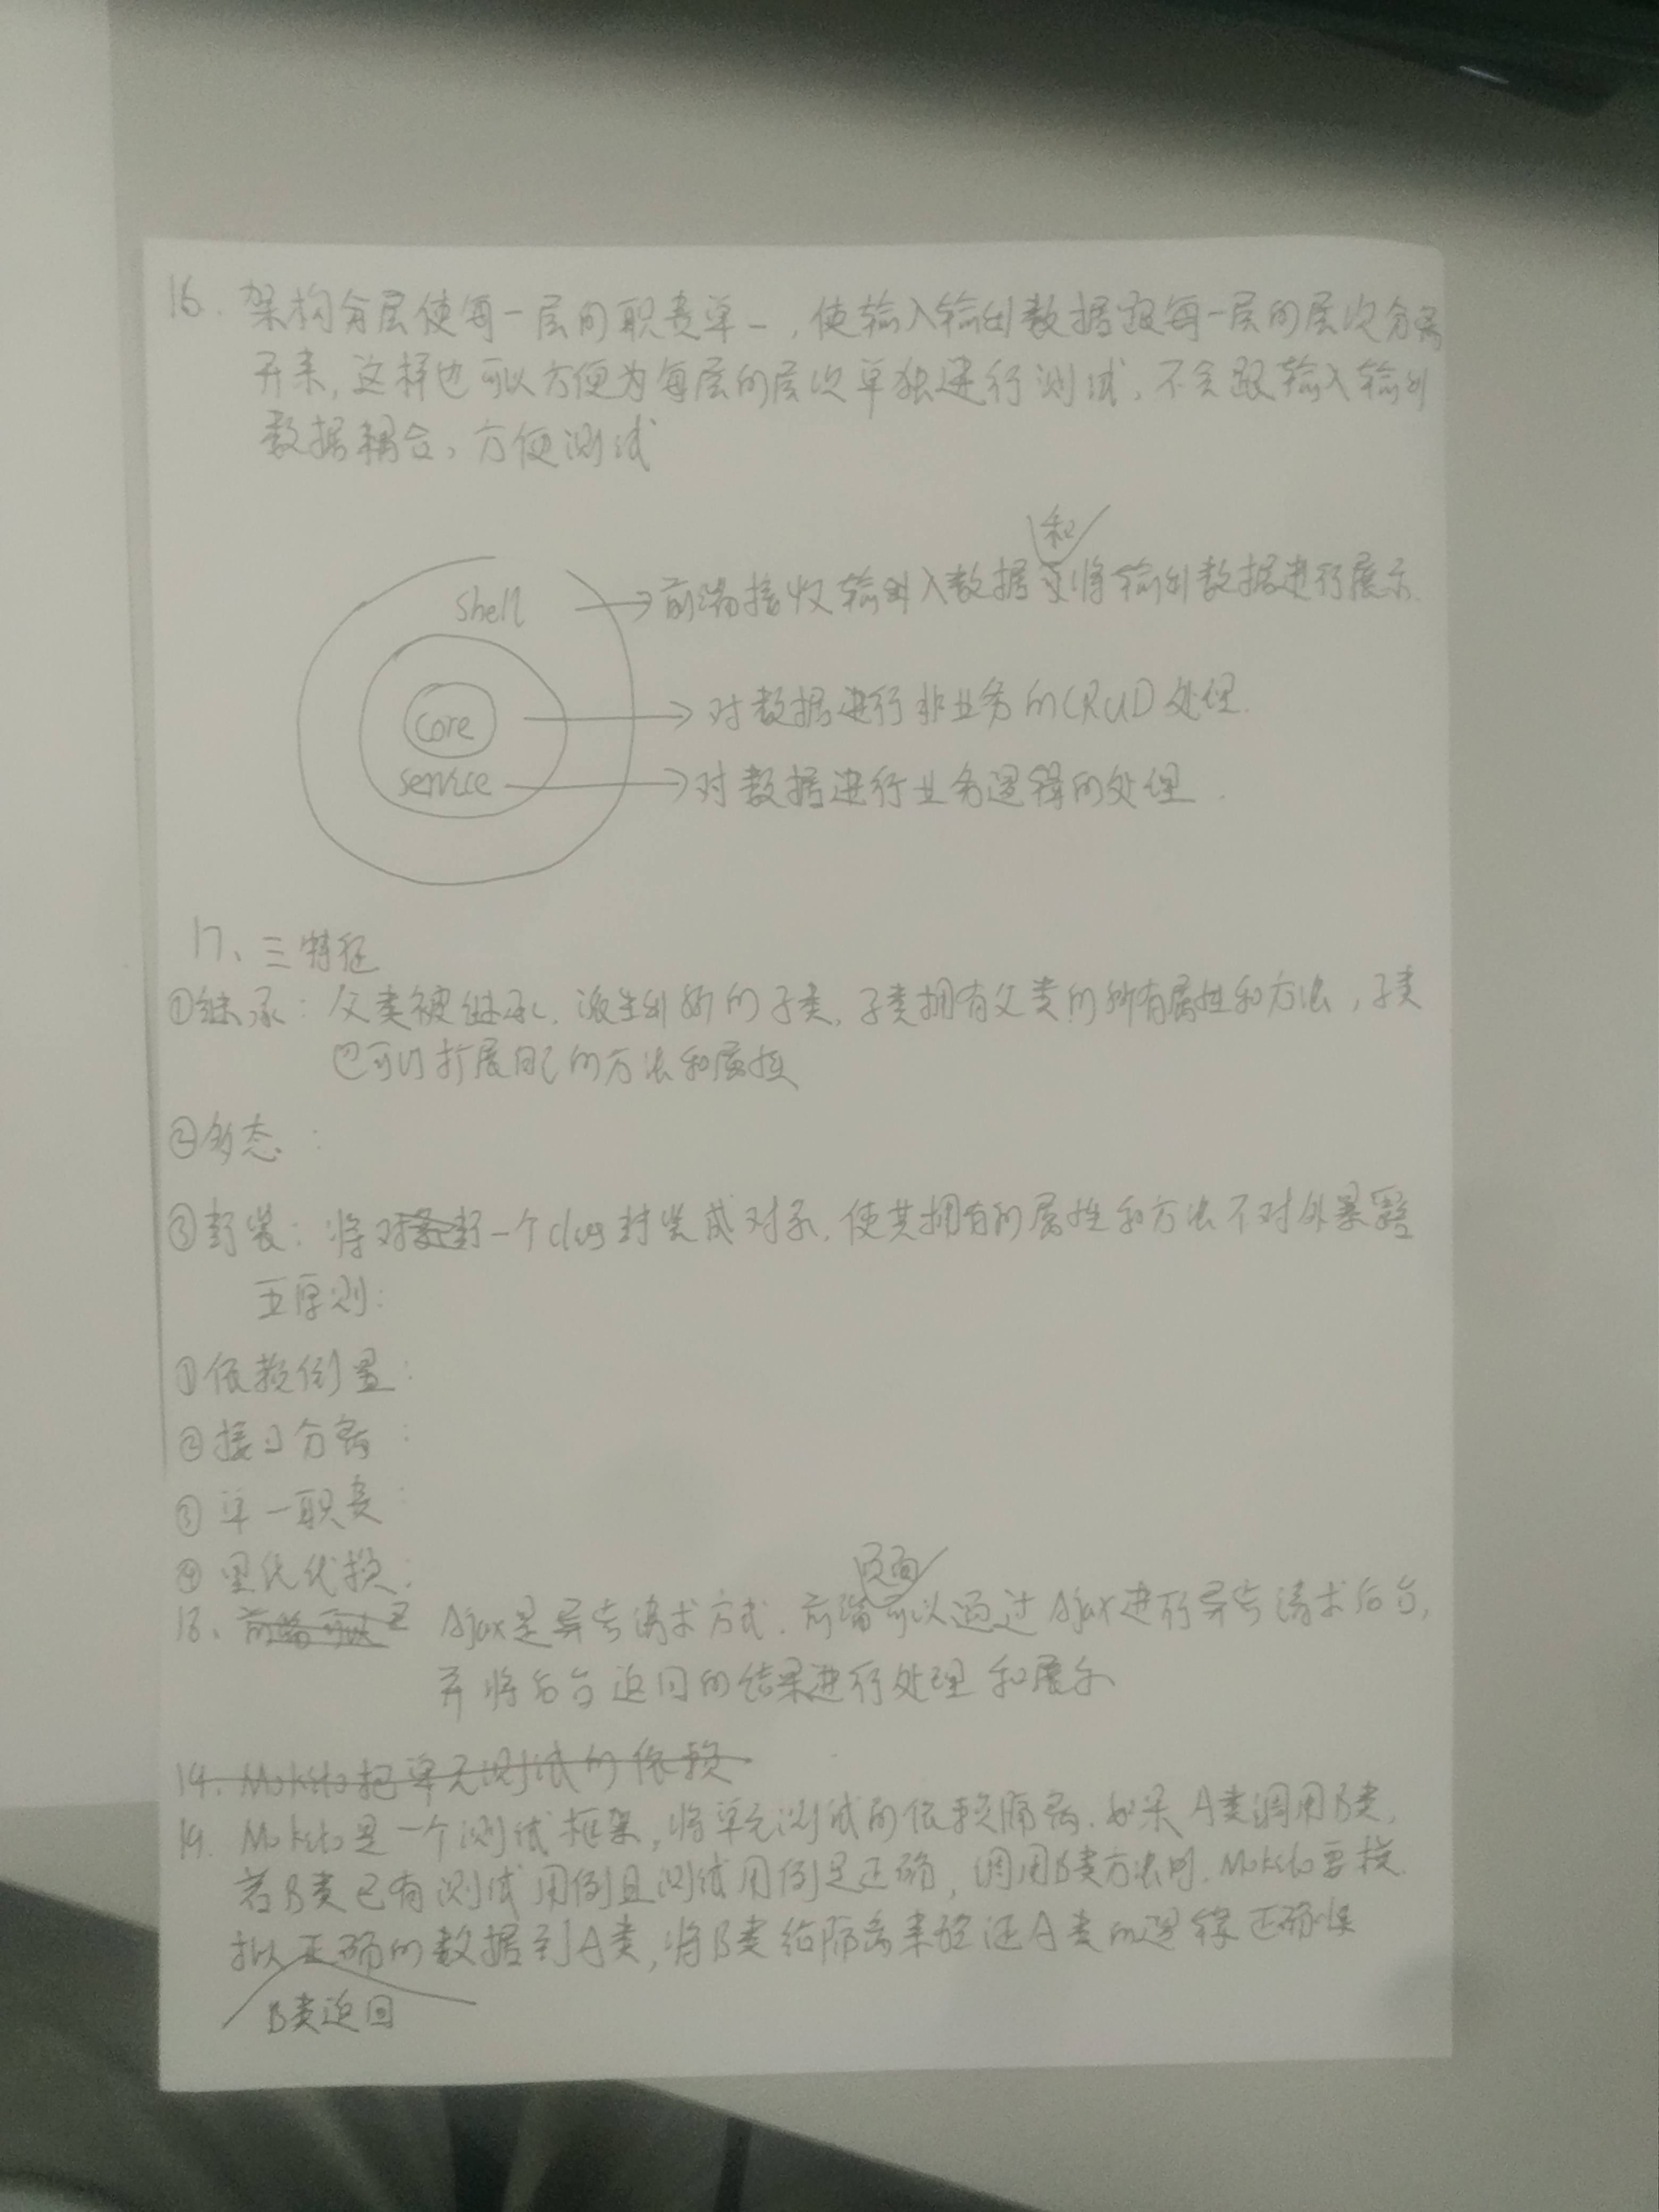 16. 架构分层使每一层的职责单一，使输入输出数据跟每一层的层次分离
开来，这样也可以方便为每层的层次单独进行测试，不会跟输入输出
数据耦合，方便测试
和
shell → 前端接收输入数据将输出数据进行展示.
core → 对数据进行非业务的CRUD处理.
service → 对数据进行业务逻辑的处理.
17、三特征
①继承：父类被继承，派生出新的子类，子类拥有父类的所有属性和方法，子类
也可以扩展自己的方法和属性
②多态：
③封装：将一个class封装成对象，使其拥有的属性和方法不对外暴露
五原则：
①依赖倒置：
②接口分离：
③单一职责：
④里氏代换：
页面
18、Ajax是异步请求方式．前端可以通过Ajax进行异步请求后台，
并将后台返回的结果进行处理和展示
19. Mokito把单元测试的依赖
19. Mokito是一个测试框架，将单元测试的依赖隔离．如果A类调用B类，
若B类已有测试用例且测试用例是正确，调用B类方法时，Mokito要模
拟正确的数据到A类，将B类给隔离来验证A类的逻辑正确性
B类返回